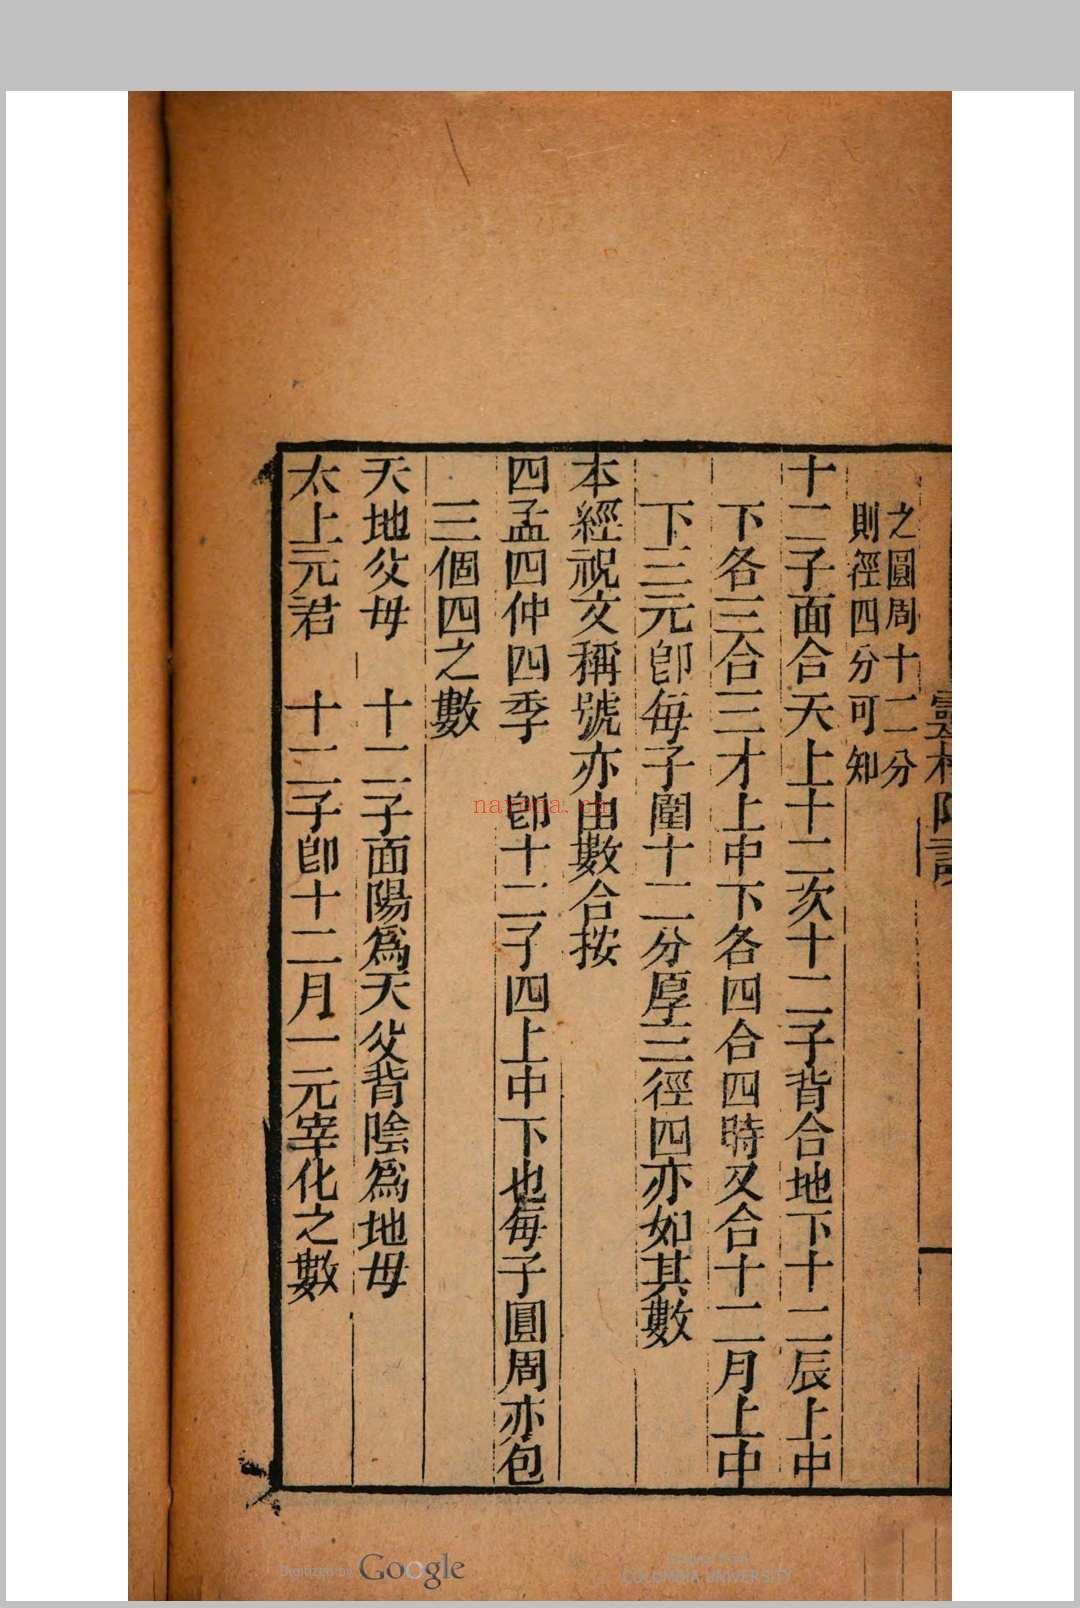 之圓周十二分
則徑四分可知
十二子面合天上十二次十二子背合地下十二辰上中
下各三合三才上中下各四合四時又合十二月上中
下三元卽每子圍十二分厚三徑四亦如其數
本經祝文稱號亦由數合按
四孟四仲四季　卽十二子四上中下也每子圓周亦包
三個四之數
天地父母　十二子面陽爲天父背陰爲地母
太上元君　十二子卽十二月一元宰化之數
Digitized by Google
Original from
COLUMBIA UNIVERSITY